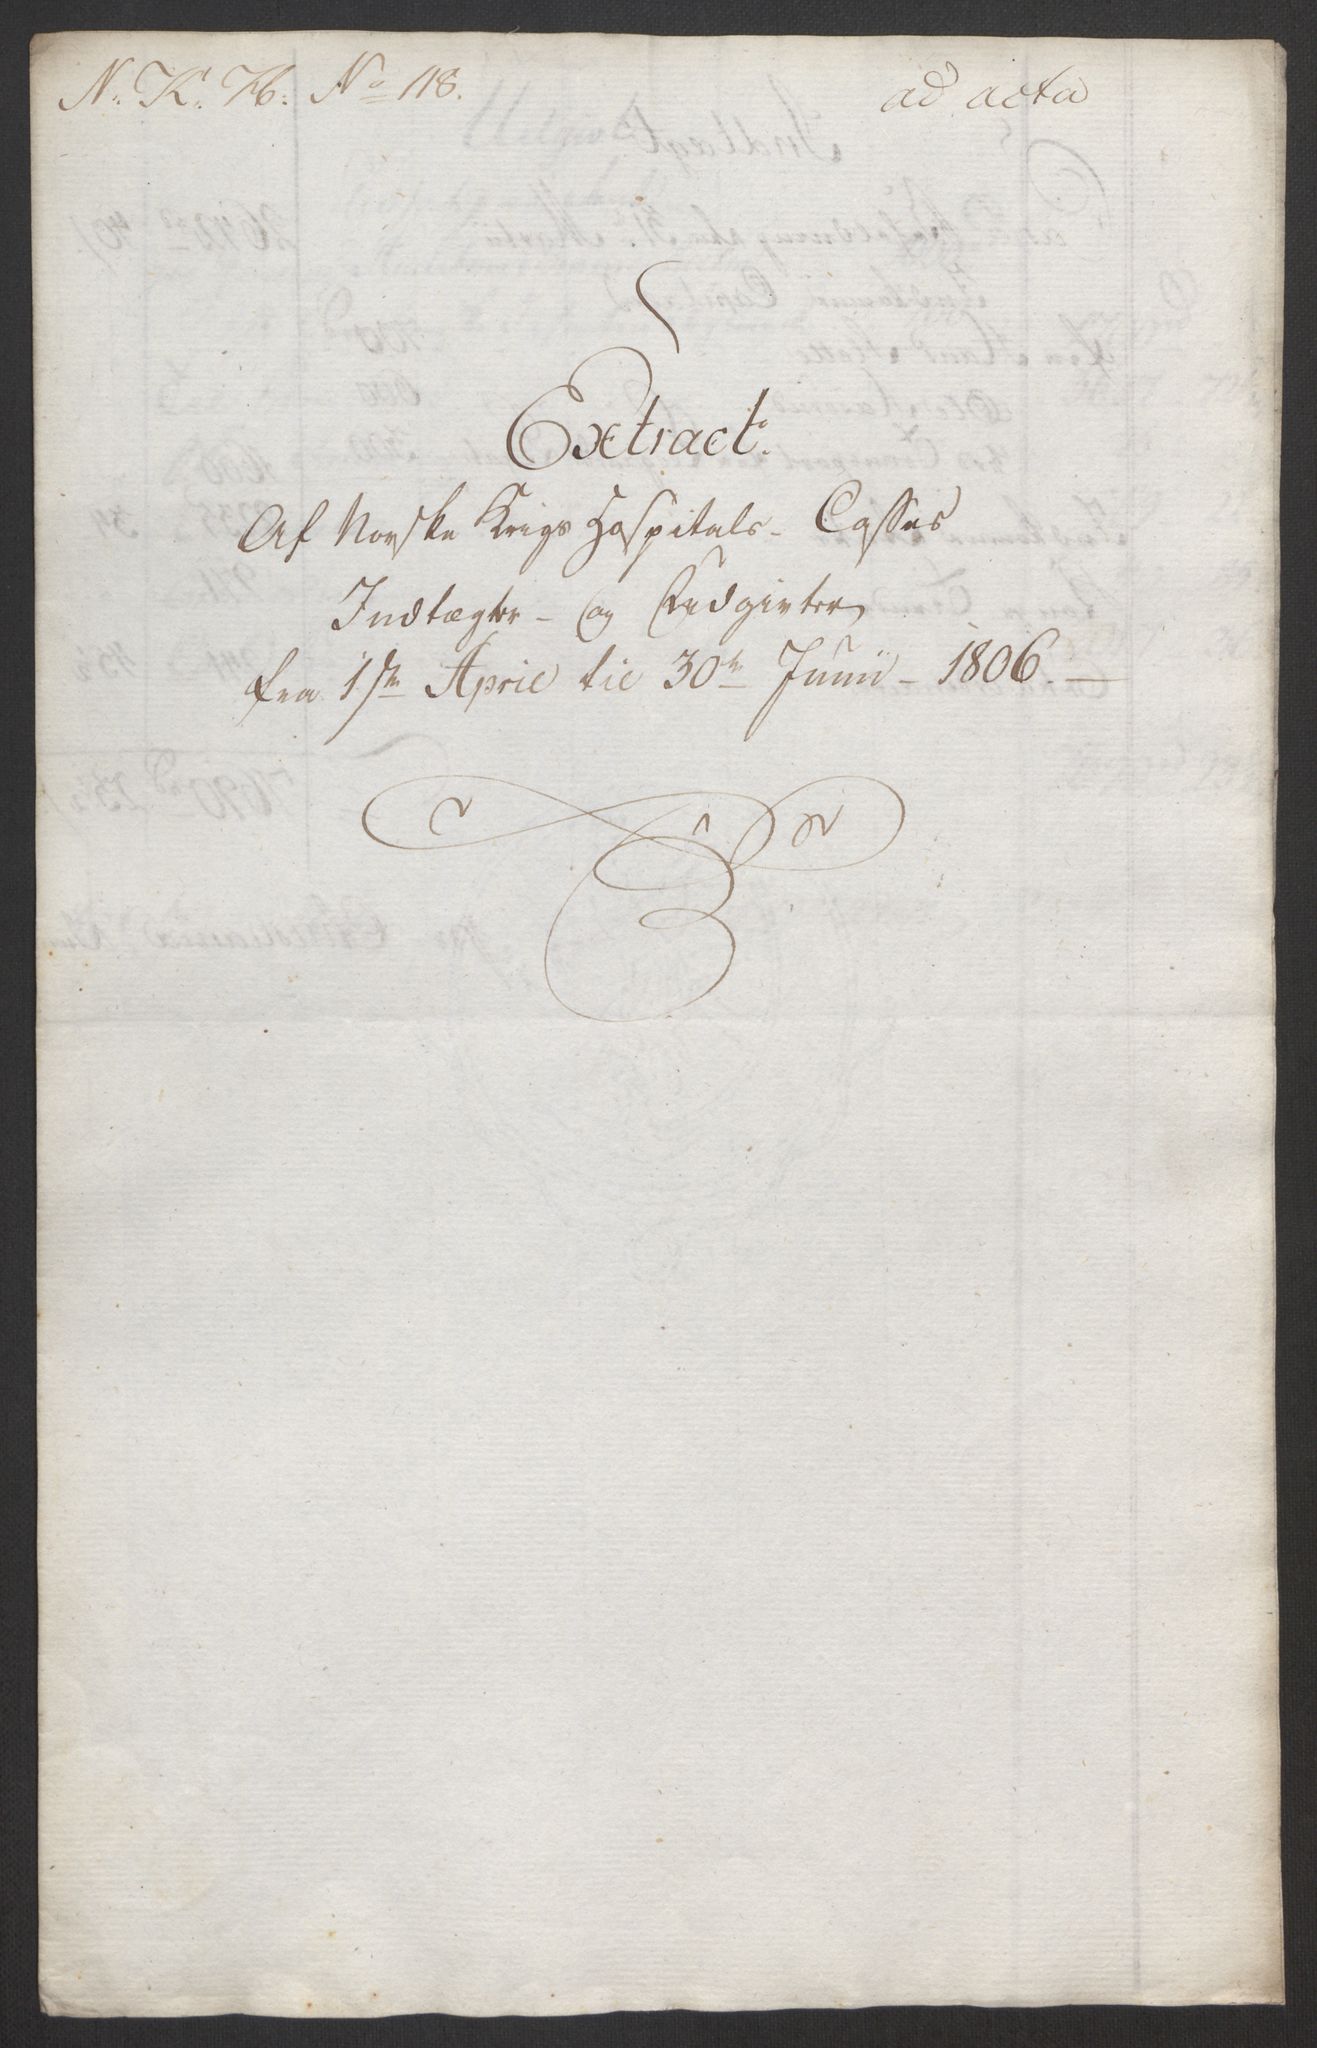 N. K. H. No 118.
ad acta
Extract.
Af Norske Krigs Hospitals- Casses
Indtægter- og Udgivter
fra 1ste April til 30te Junii- 1806.